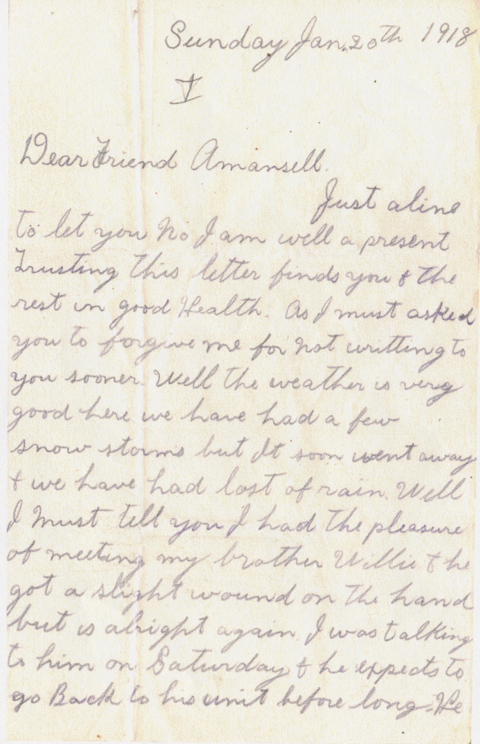 Sunday Jan. 20th 1918
V
Dear Friend Amansell.
Just a line
to let you No I am well a present
Trusting this letter finds you & the
rest in good Health. As I must asked
you to forgive me for Not writting to
you sooner. Well the weather is very
good here we have had a few
snow storms but It soon went away
& we have had lost of rain. Well
I Must tell you I had the pleasure
of meeting my brother Willie & he
got a slight wound on the hand
but is alright again. I was talking
to him on Saturday & he expects to
go Back to his unit before long. He